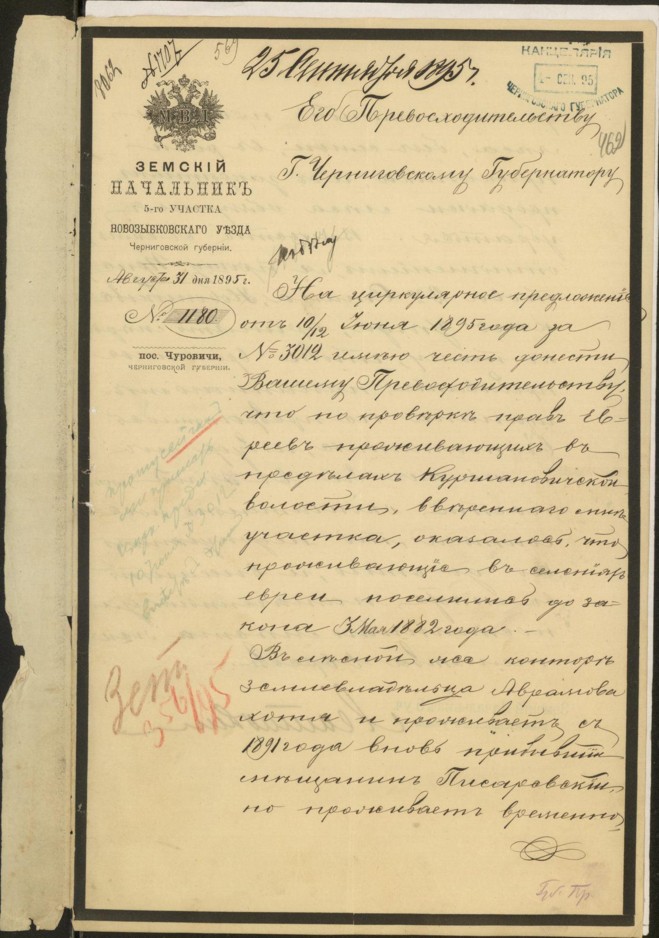 8062
№ 1707
569
25 Сентября 1895 г.
КАНЦЕЛЯРІЯ
1- СЕН. 95
ЧЕРНИГОВСКАГО ГУБЕРНАТОРА
462
М В Д
ЗЕМСКІЙ
НАЧАЛЬНИКЪ
5-го УЧАСТКА
НОВОЗЫБКОВСКАГО УѢЗДА
Черниговской губерніи.
Августа 31 дня 1895 г.
№ 1180
пос. Чуровичи,
ЧЕРНИГОВСКОЙ ГУБЕРНІИ.
Его Превосходительству
Г. Черниговскому Губернатору
На циркулярное предложеніе
отъ 10/12 Іюня 1895 года за
№ 3012 имѣю честь донести
Вашему Превосходительству,
что по провѣркѣ правъ Ев-
реевъ проживающихъ въ
предѣлахъ Куршановичской
волости, ввѣреннаго мнѣ
участка, оказалось, что
проживающіе въ селеніяхъ
евреи поселились до за-
кона 3 Мая 1882 года. —
Въ лѣсной же конторѣ
землевладѣльца Аврамова
хотя и проживаетъ съ
1891 года вновь прибывшій
мѣщанинъ Писаревскій,
но проживаетъ временно,